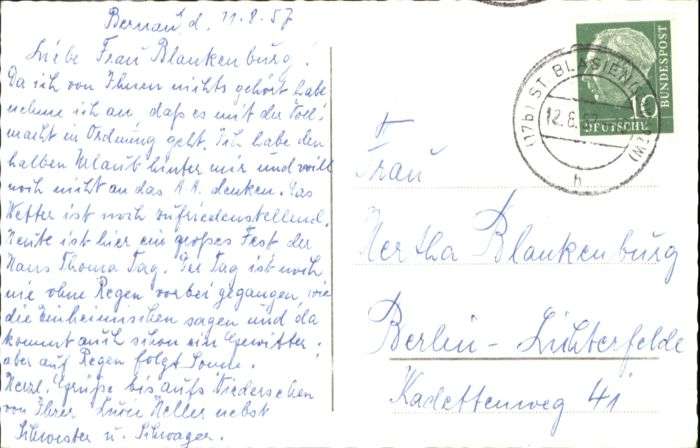 Bernau d. 11.8.57
Liebe Frau Blankenburg!
Da ich von Ihnen nichts gehört habe
nehme ich an, daß es mit der Voll-
macht in Ordnung geht. Ich habe den
halben Urlaub hinter mir und will
noch nicht an das A.A. denken. Das
Wetter ist noch zufriedenstellend.
Heute ist hier ein großes Fest der
Hans Thoma Tag. Der Tag ist noch
nie ohne Regen vorbei gegangen, wie
die Einheimischen sagen und da
kommt auch schon ein Gewitter.
aber auf Regen folgt Sonne.
Herzl. Grüße bis aufs Wiedersehen
von Ihrer Heller nebst
Schwester u. Schwager.
(17b) ST. BLASIEN
12.8.
b
10
DEUTSCHE
BUNDESPOST
Frau
Hertha Blankenburg
Berlin-Lichterfelde
Kadettenweg 41